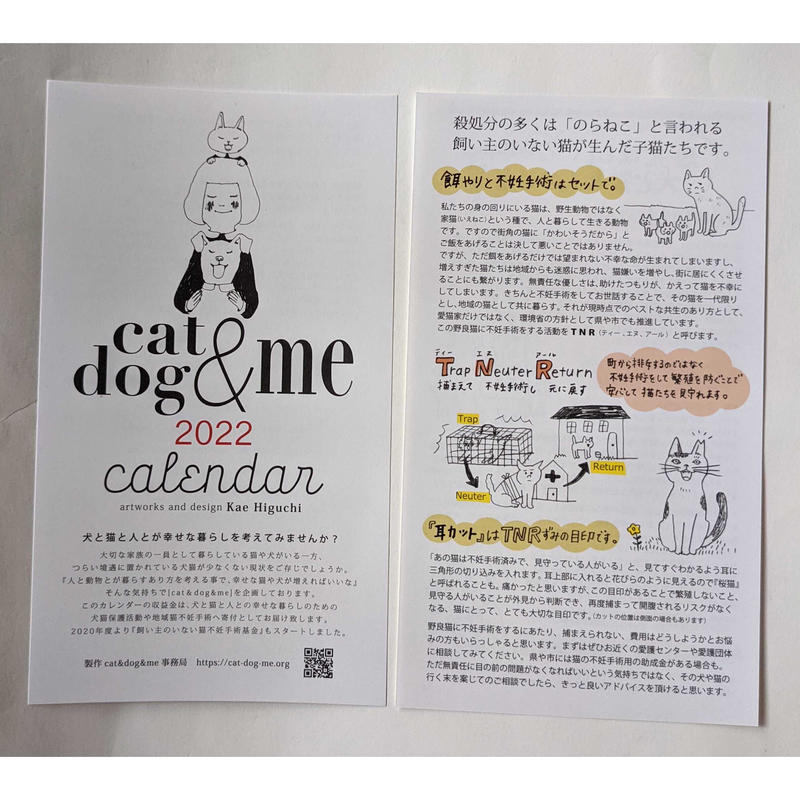 cat
dog&me
2022
calendar
artworks and design Kae Higuchi
犬と猫と人とが幸せな暮らしを考えてみませんか？
大切な家族の一員として暮らしている猫や犬がいる一方、
つらい境遇に置かれている犬猫が少なくない現状をご存じでしょうか。
『人と動物とが暮らすあり方を考える事で、幸せな猫や犬が増えればいいな』
そんな気持ちで[cat&dog&me]を企画しております。
このカレンダーの収益金は、犬と猫と人との幸せな暮らしのための
犬猫保護活動や地域猫不妊手術へ寄付としてお届け致します。
2020年度より『飼い主のいない猫不妊手術基金』もスタートしました。
製作 cat&dog&me 事務局 https://cat-dog-me.org
殺処分の多くは「のらねこ」と言われる
飼い主のいない猫が生んだ子猫たちです。
餌やりと不妊手術はセットで。
私たちの身の回りにいる猫は、野生動物ではなく
家猫(いえねこ)という種で、人と暮らして生きる動物
です。ですので街角の猫に「かわいそうだから」と
ご飯をあげることは決して悪いことではありません。
ですが、ただ餌をあげるだけでは望まれない不幸な命が生まれてしまいますし、
増えすぎた猫たちは地域からも迷惑に思われ、猫嫌いを増やし、街に居にくくさせ
ることにも繋がります。無責任な優しさは、助けたつもりが、かえって猫を不幸に
してしまいます。きちんと不妊手術をしてお世話することで、その猫を一代限り
とし、地域の猫として共に暮らす。それが現時点でのベストな共生のあり方として、
愛猫家だけではなく、環境省の方針として県や市でも推進しています。
この野良猫に不妊手術をする活動をTNR（ティー、エヌ、アール）と呼びます。
ティー エヌ アール
Trap Neuter Return
捕まえて 不妊手術し 元に戻す
町から排斥するのではなく
不妊手術をして繁殖を防ぐことで
安心して猫たちを見守れます。
Trap
Return
Neuter
『耳カット』はTNRずみの目印です。
「あの猫は不妊手術済みで、見守っている人がいる」と、見てすぐわかるよう耳に
三角形の切り込みを入れます。耳上部に入れると花びらのように見えるので『桜猫』
と呼ばれることも。痛かったと思いますが、この目印があることで繁殖しないこと、
見守る人がいることが外見から判断でき、再度捕まって開腹されるリスクがなく
なる、猫にとって、とても大切な目印です。(カットの位置は側面の場合もあります)
野良猫に不妊手術をするにあたり、捕まえられない、費用はどうしようかとお悩
みの方もいらっしゃると思います。まずはぜひお近くの愛護センターや愛護団体
に相談してみてください。県や市には猫の不妊手術用の助成金がある場合も。
ただ無責任に目の前の問題がなくなればいいという気持ちではなく、その犬や猫の
行く末を案じてのご相談でしたら、きっと良いアドバイスを頂けると思います。